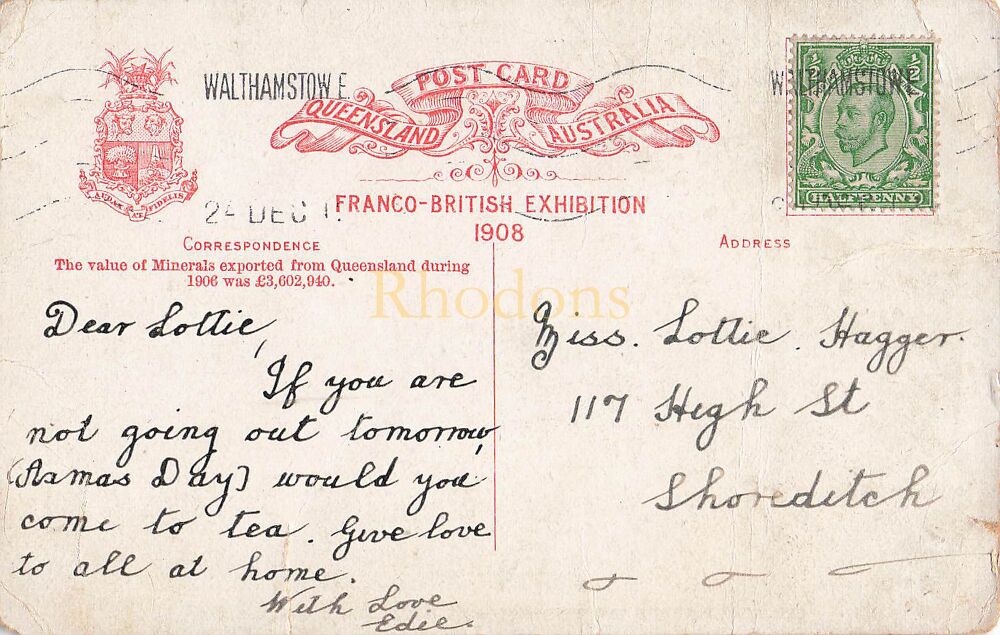 WALTHAMSTOW E.
POST CARD
QUEENSLAND AUSTRALIA
WALTHAMSTOW E.
1/2 1/2
HALFPENNY
AUDAX AT FIDELIS
24 DEC 1
FRANCO-BRITISH EXHIBITION
1908
CORRESPONDENCE
The value of Minerals exported from Queensland during
1906 was £3,602,940.
Dear Lottie,
If you are
not going out tomorrow,
(Axmas Day) would you
come to tea. Give love
to all at home.
With Love
Edie.
ADDRESS
Miss. Lottie. Hagger.
117 High St
Shoreditch
Rhodons